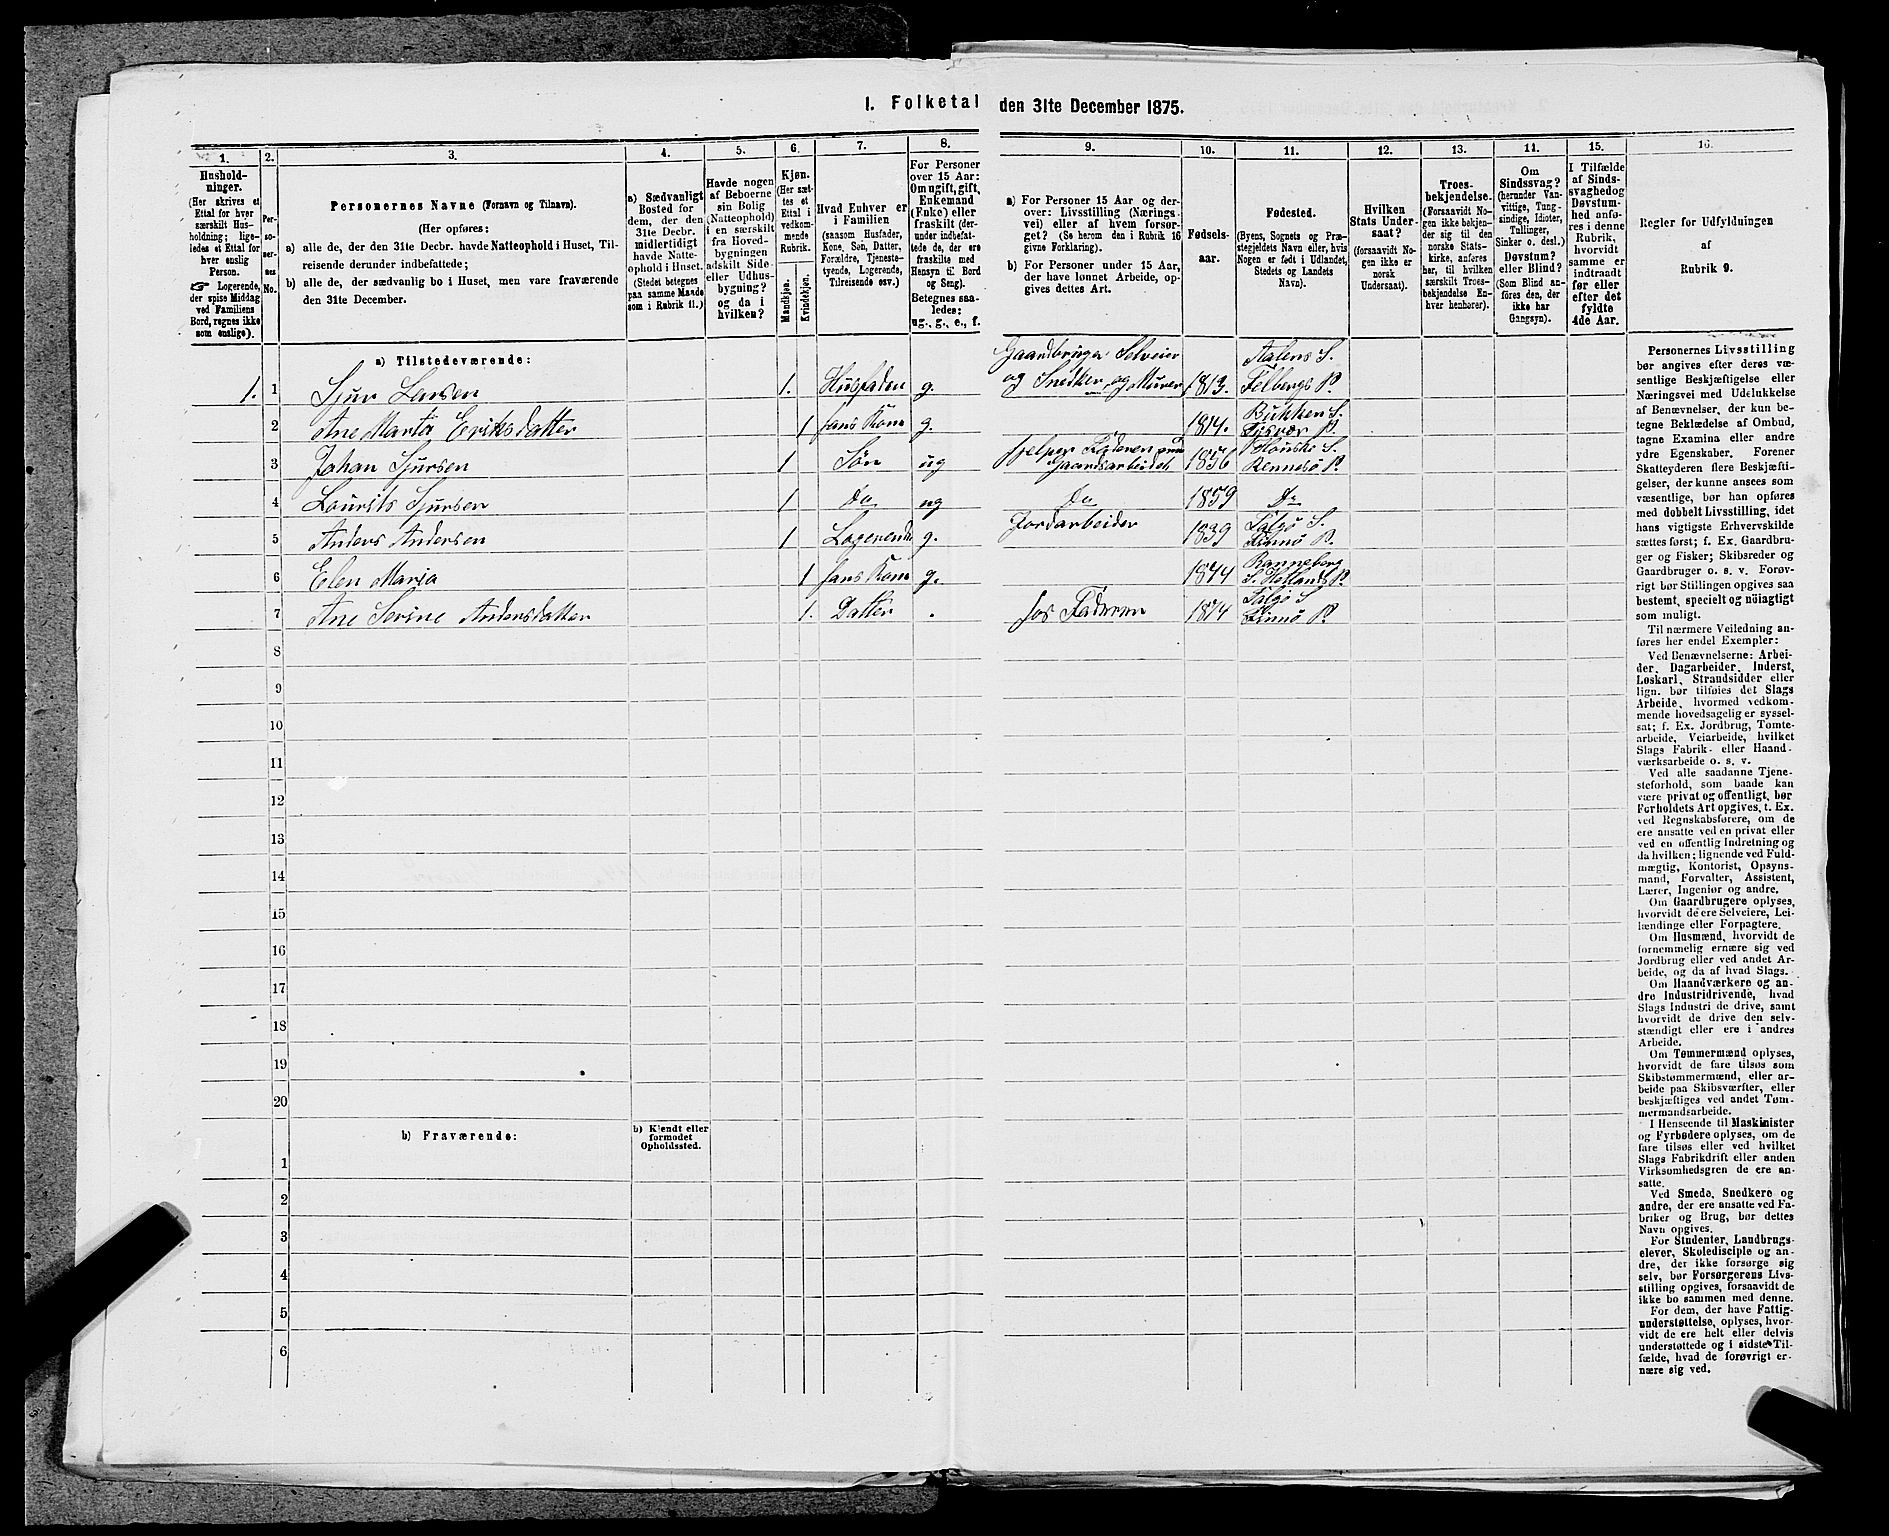 1. Folketal den 31te December 1875.
1.
Hushold-
ninger.
(Her skrives et
Ettal for hver
særskilt Hus-
holdning; lige-
ledes et Ettal for
hver enslig
Person.
☞ Logerende,
der spise Middag
ved Familiens
Bord, regnes ikke
som enslige).
2.
Per-
so-
ner-
nes
No.
3.
Personernes Navne (Fornavn og Tilnavn).
(Her opføres:
a) alle de, der den 31te Decbr. havde Natteophold i Huset, Til-
reisende derunder indbefattede;
b) alle de, der sædvanlig bo i Huset, men vare fraværende
den 31te December.
4.
a) Sædvanligt
Bosted for
dem, der den
31te Decbr.
midlertidigt
havde Natte-
ophold i Huset.
(Stedet betegnes
paa samme Maade
som i Rubrik 11.)
5.
Havde nogen
af Beboerne
sin Bolig
(Natteophold)
i en særskilt
fra Hoved-
bygningen
adskilt Side-
eller Udhus-
bygning?
og da i
hvilken?
6.
Kjøn.
(Her sæt-
tes et
Ettal i
vedkom-
mende
Rubrik.
Mandkjøn.
Kvindekjøn.
7.
Hvad Enhver er
i Familien
(saasom Husfader,
Kone, Søn, Datter,
Forældre, Tjeneste-
tyende, Logerende,
Tilreisende osv.)
8.
For Personer
over 15 Aar:
Om ugift, gift,
Enkemand
(Enke) eller
fraskilt (der-
under indbefat-
tede de, der ere
fraskilte med
Hensyn til Bord
og Seng).
Betegnes saa-
ledes:
ug., g., e., f.
9.
a) For Personer 15 Aar og der-
over: Livsstilling (Nærings-
vei) eller af hvem forsør-
get? (Se herom den i Rubrik 16
givne Forklaring).
b) For Personer under 15 Aar,
der have lønnet Arbeide, op-
gives dettes Art.
10.
Fødsels-
aar.
11.
Fødested.
(Byens, Sognets og Præ-
stegjeldets Navn eller, hvis
Nogen er født i Udlandet,
Stedets og Landets
Navn).
12.
Hvilken
Stats Under-
saat?
(forsaavidt No-
gen ikke er
norsk
Undersaat).
13.
Troes-
bekjendelse.
(Forsaavidt No-
gen ikke bekjen-
der sig til den
norske Stats-
kirke, anføres
her, til hvilken
særskilt Troes-
bekjendelse En-
hver henhører).
11.
Om
Sindssvag?
(herunder Van-
vittige, Tung-
sindige, Idioter,
Tullinger,
Sinker o. desl.)
Døvstum?
eller Blind?
(Som Blind an-
føres den, der
ikke har
Gangsyn).
15.
I Tilfælde
af Sinds-
svaghed og
Døvstum-
hed anfø-
res i denne
Rubrik,
hvorvidt
samme er
indtraadt
før eller
efter det
fyldte
4de Aar.
16.
Regler for Udfyldningen
af
Rubrik 9.
a) Tilstedeværende:
Gaardbruger Selveier Aalens S.
1. 1 Sjur Larsen 1. Husfaden g. og Snedker og Murer 1813. Felbergs P.
Bukken S.
2 Ane Marta Eriksdatter 1 hans Kone g. 1814. P.
3 Johan Sjursen 1 Søn ug hjelper Faderen med Gaardsarbeidet 1856 S. Rennesø P.
4 Laurits Sjursen 1 Do ug Do 1859 Do
5 Anders Andersen 1 Logerende g. Jordarbeider 1839 Talgø S. Finnø P.
6 Elen Maria 1 hans Kone g. 1844 Ranneberg S. Hetlands P.
7 Ane Serine Andersdatter 1. Datter . hos Faderen 1874 Talgø S. Finnø P.
8
9
10
11
12
13
14
15
16
17
18
19
20
b) Fraværende:
b) Kjendt eller
formodet
Opholdssted.
1
2
3
4
5
6
Personernes Livsstilling
bør angives efter deres væ-
sentlige Beskjæftigelse eller
Næringsvei med Udelukkelse
af Benævnelser, der kun be-
tegne Beklædelse af Ombud,
tagne Examina eller andre
ydre Egenskaber. Forener
Skatteyderen flere Beskjæfti-
gelser, der kunne ansees som
væsentlige, bør han opføres
med dobbelt Livsstilling, idet
hans vigtigste Erhvervskilde
sættes først; f. Ex. Gaardbru-
ger og Fisker; Skibsreder og
Gaardbruger o. s. v. Forøv-
rigt bør Stillingen opgives saa
bestemt, specielt og nøiagtigt
som muligt.
Til nærmere Veiledning an-
føres her endel Exempler:
Ved Benævnelserne: Arbei-
der, Dagarbeider, Inderst,
Løskarl, Strandsidder eller
lign. bør tilføies det Slags
Arbeide, hvormed vedkom-
mende hovedsagelig er syssel-
sat; f. Ex. Jordbrug, Tømte-
arbeide, Veiarbeide, hvilket
Slags Fabrik- eller Haand-
værksarbeide o. s. v.
Ved alle saadanne Tjene-
steforhold, som baade kan
være privat og offentligt, bør
Forholdets Art opgives, t. Ex.
ved Regnskabsførere, om de
ere ansatte ved en privat eller
ved en offentlig Indretning og
da hvilken; lignende ved Fuld-
mægtig, Kontorist, Opsyns-
mand, Forvalter, Assistent,
Lærer, Ingeniør og andre.
Om Gaardbrugere oplyses,
hvorvidt de ere Selveiere, Lei-
lændinge eller Forpagtere.
Om Husmænd, hvorvidt de
fornemmelig ernære sig ved
Jordbrug eller ved andet Ar-
beide, og da af hvad Slags.
Om Haandværkere og an-
dre Industridrivende, hvad
Slags Industri de drive, samt
hvorvidt de drive den selv-
stændigt eller ere i andres
Arbeide.
Om Tømmermænd oplyses,
hvorvidt de fare tilsøs som
Skibstømmermænd, eller ar-
beide paa Skibsværfter, eller
beskjæftiges ved andet Tøm-
mermandsarbeide.
I Henseende til Maskinister
og Fyrbødere oplyses, om de
fare tilsøs eller ved hvilket
Slags Fabrikdrift eller anden
Virksomhedsgren de ere an-
satte.
Ved Smede, Snedkere og
andre, der ere ansatte ved Fa-
briker og Brug, bør dettes
Navn opgives.
For Studenter, Landbrugs-
elever, Skoledisciple og an-
dre, der ikke forsørge sig
selv, bør Forsørgerens Livs-
stilling opgives, forsaavidt de
ikke bo sammen med denne.
For dem, der have Fattig-
understøttelse, oplyses, hvor-
vidt de ere helt eller delvis
understøttede og i sidste Til-
fælde, hvad de forøvrigt er-
nære sig ved.